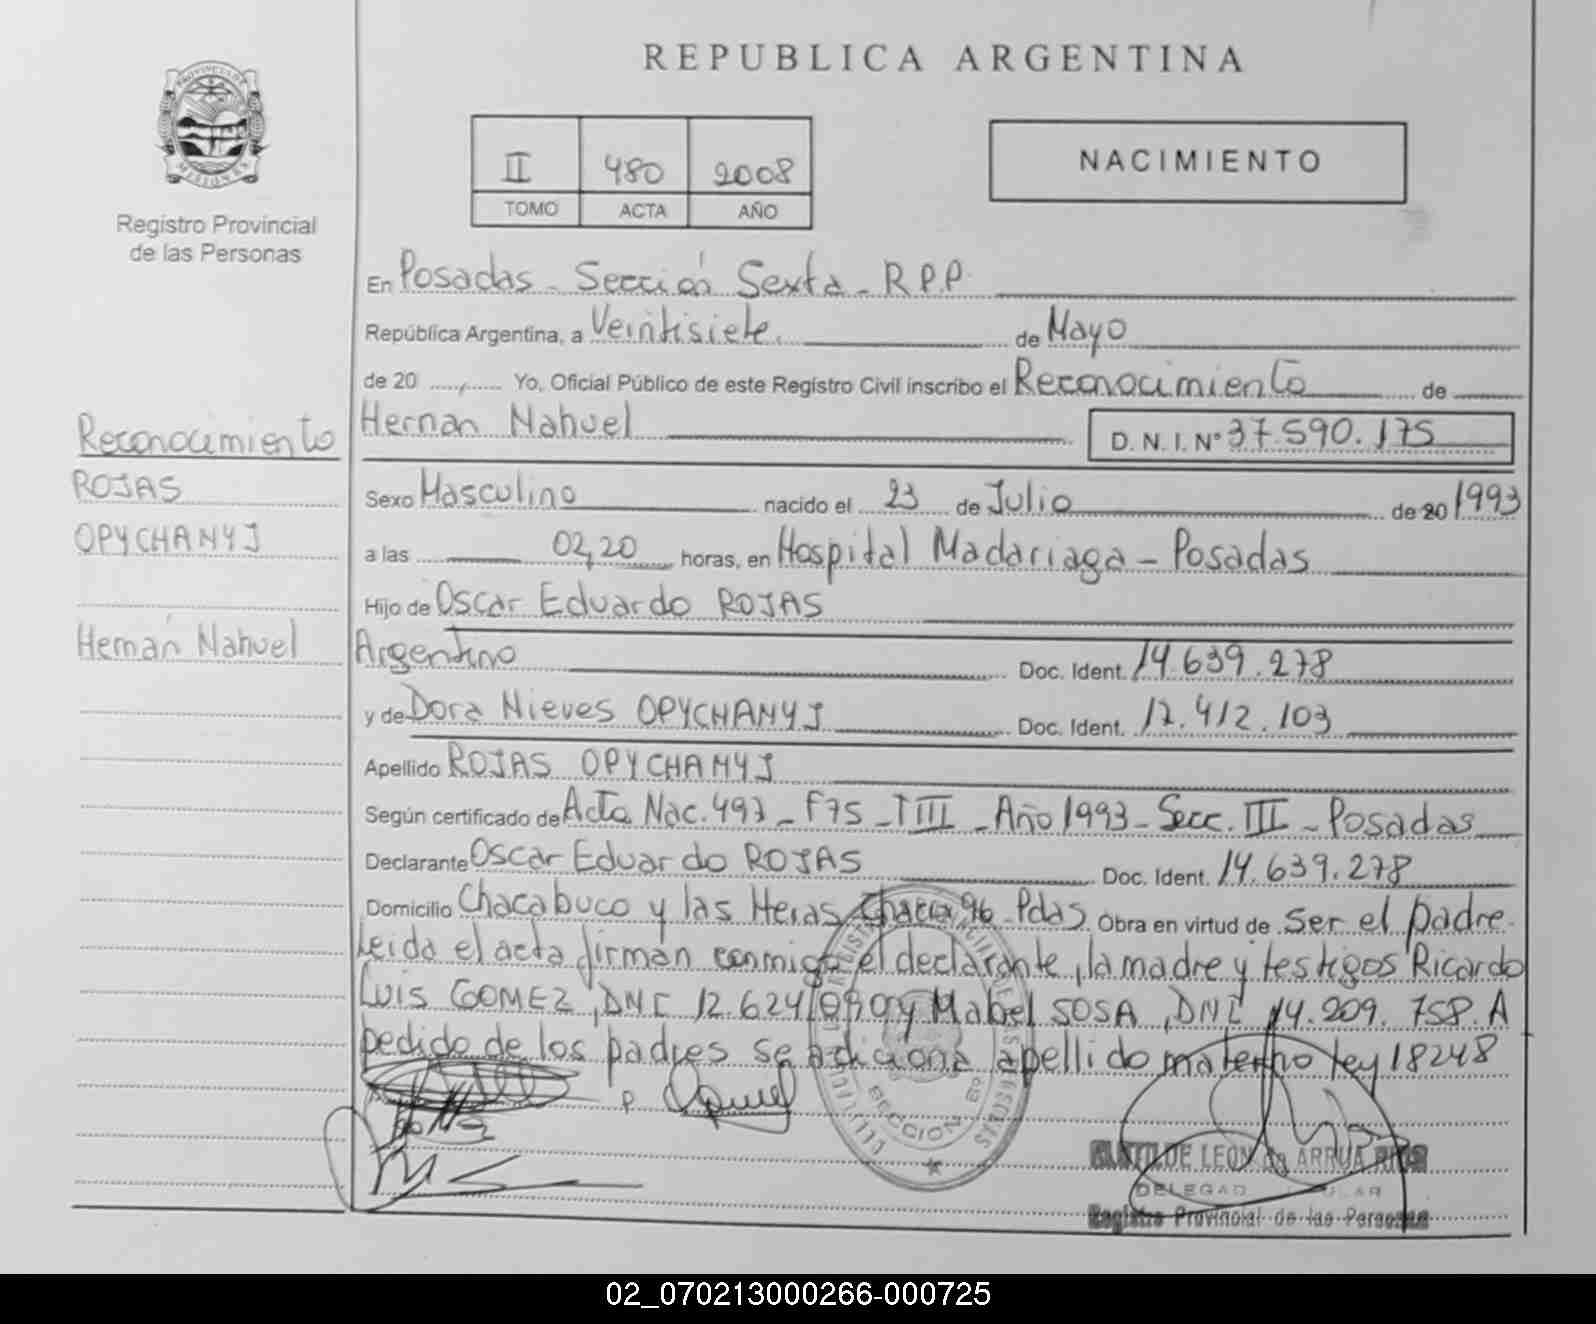 REPUBLICA ARGENTINA
PROVINCIA DE
MISIONES
Registro Provincial
de las Personas
II 480 2008
TOMO ACTA AÑO
NACIMIENTO
En Posadas - Sección Sexta - R.P.P.
República Argentina, a Veintisiete. de Mayo
de 20 Yo, Oficial Público de este Registro Civil inscribo el Reconocimiento de
Hernan Nahuel D. N. I. Nº 37.590.175
Reconocimiento
ROJAS
OPYCHANYJ
Hernán Nahuel
Sexo Masculino nacido el 23 de Julio de 20 1993
a las 02,20 horas, en Hospital Madariaga - Posadas
Hijo de Oscar Eduardo ROJAS
Argentino Doc. Ident. 14.639.278
y de Dora Nieves OPYCHANYJ Doc. Ident. 12.412.103
Apellido ROJAS OPYCHANYJ
Según certificado de Acta Nac. 497 - F75 - T III - Año 1993 - Secc. III - Posadas
Declarante Oscar Eduardo ROJAS Doc. Ident. 14.639.278
Domicilio Chacabuco y las Heras Chacra 96 - Pdas Obra en virtud de Ser el padre.
Leida el acta firman conmigo el declarante, la madre y testigos Ricardo
Luis GOMEZ, DNI 12.624.090 y Mabel SOSA, DNI 14.209.758. A
pedido de los padres se adiciona apellido materno ley 18248
SECCION 6º
MATILDE LEON de ARRUA
Registro Provincial de las Personas
02_070213000266-000725